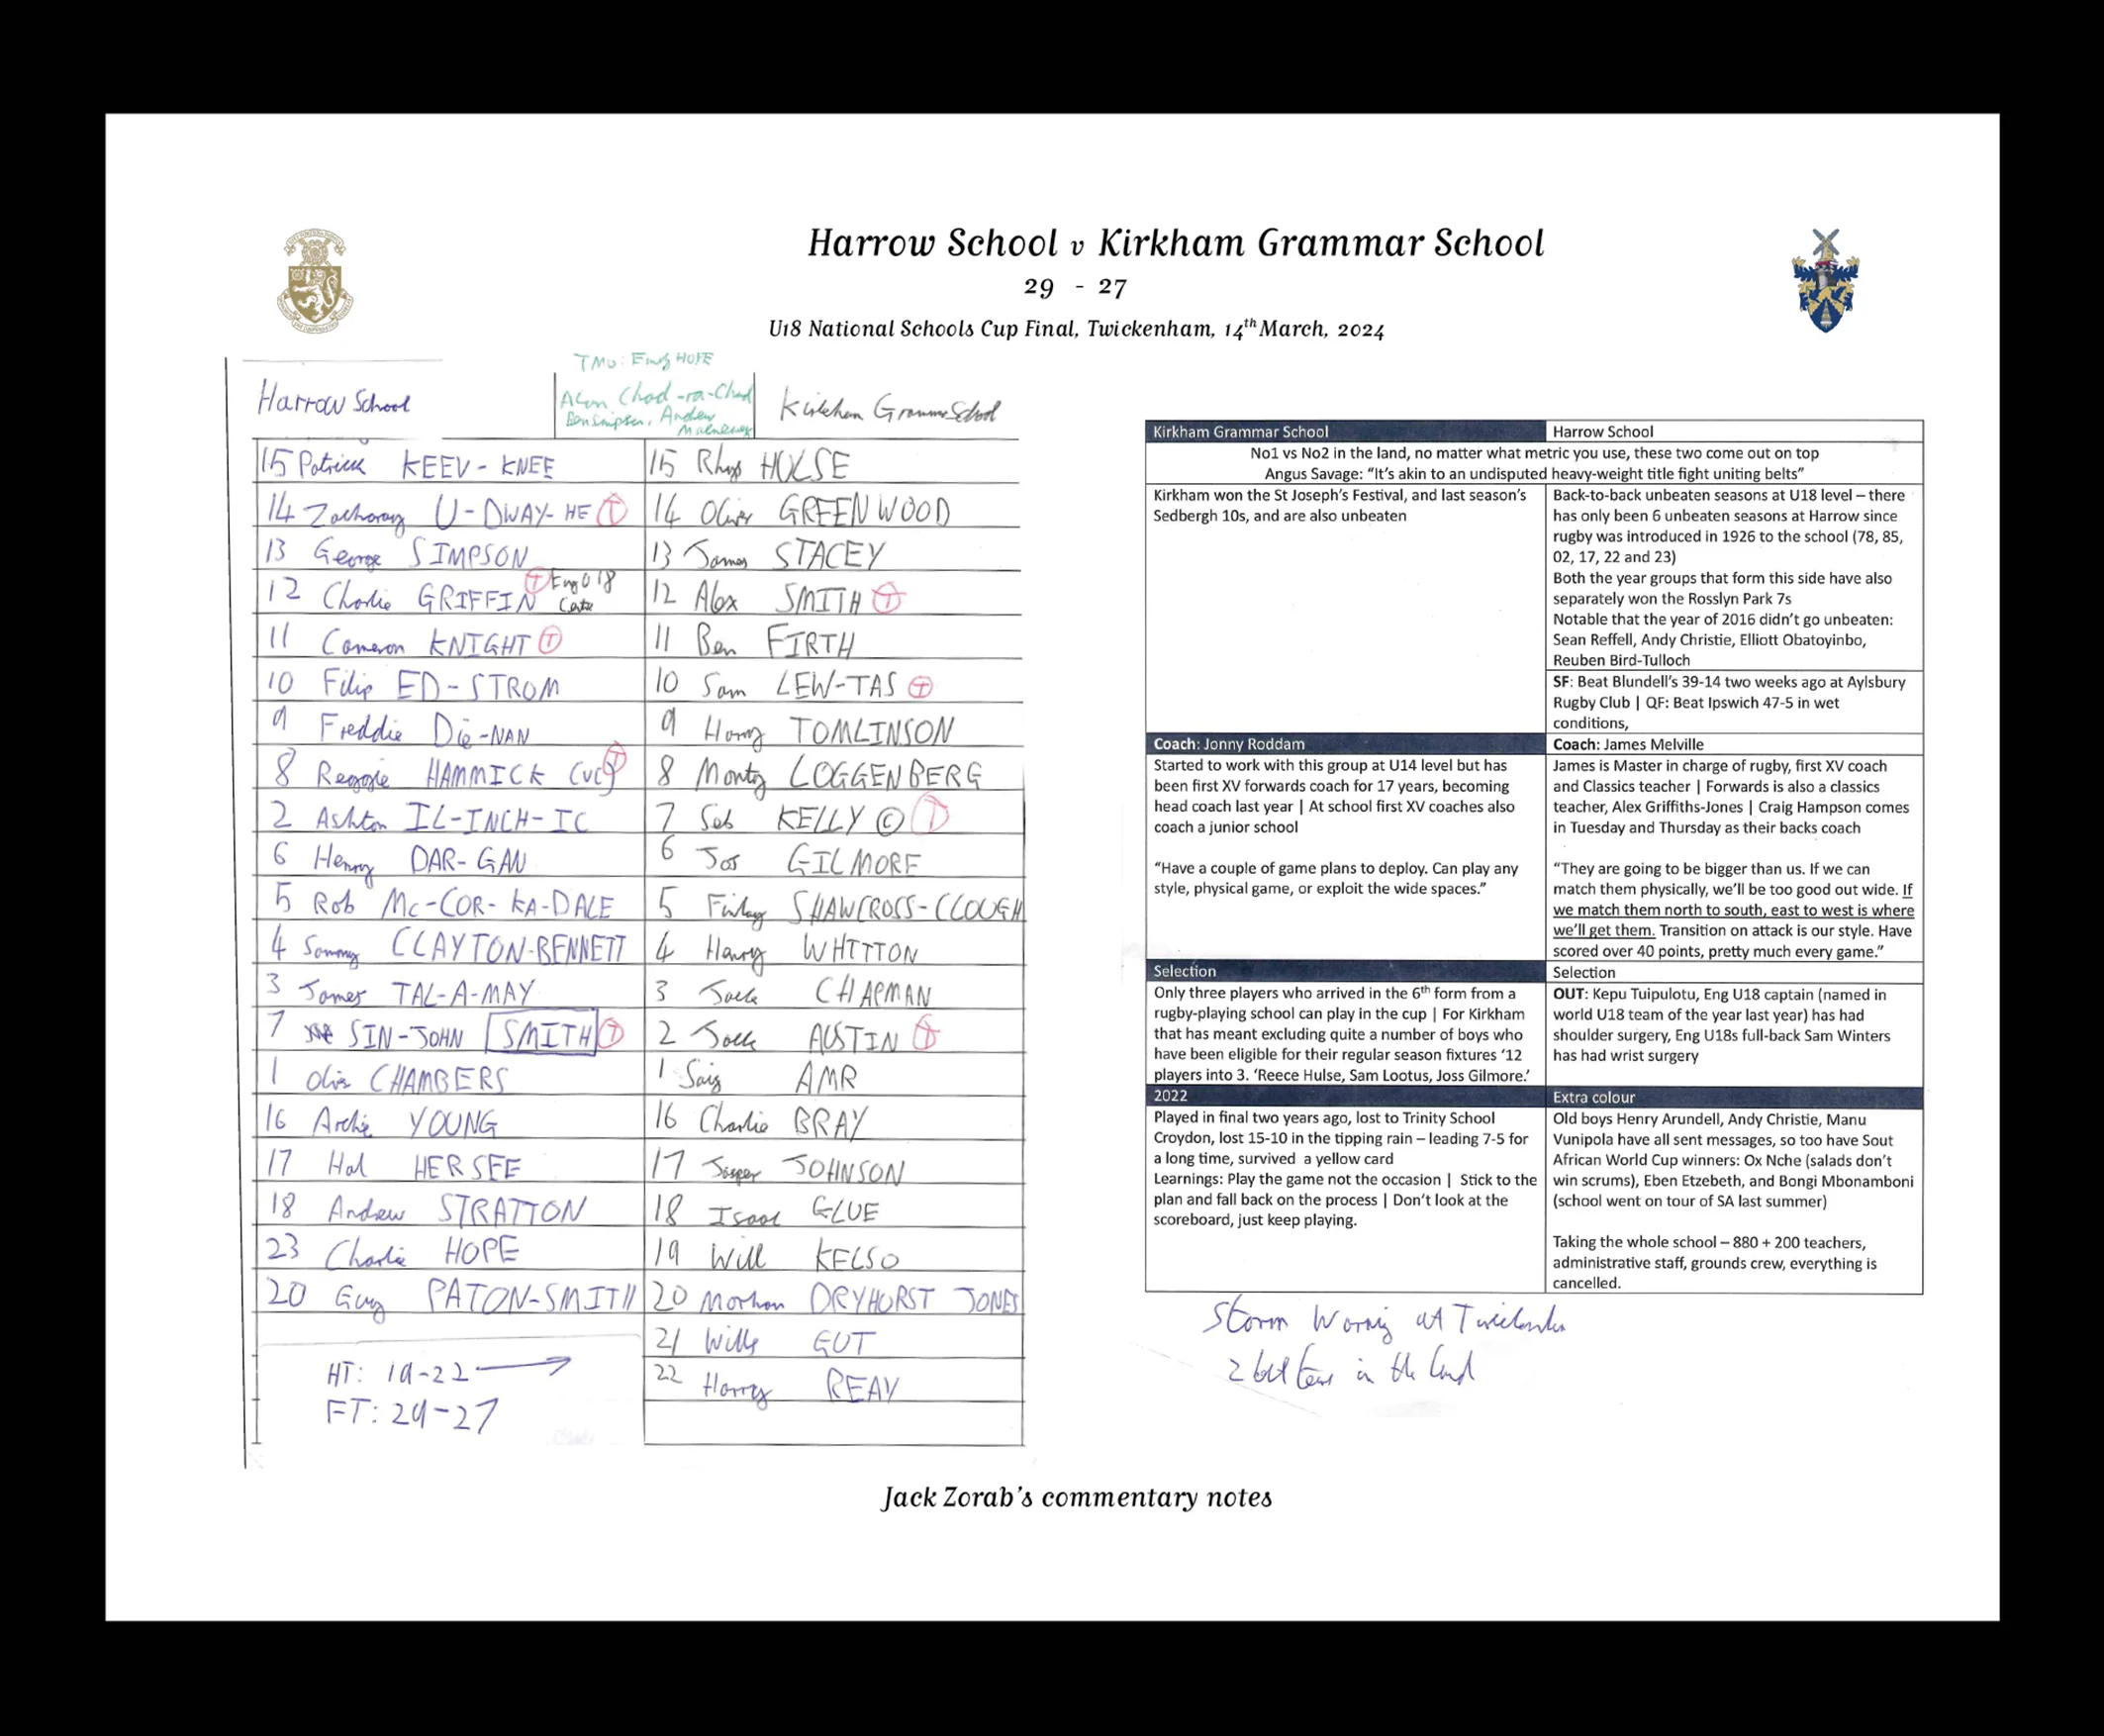 Harrow School v Kirkham Grammar School
29 - 27
U18 National Schools Cup Final, Twickenham, 14th March, 2024
TMO: Ewg HOPE
Harrow School
Chad-ra-Chad
Ben Simpson, Andrew
Kirkham Grammar School
15 Patrick KEEV-KNEE
15 Rhys HULSE
14 Zacharay U-DWAY-HE T
14 Oliver GREENWOOD
13 George SIMPSON
13 James STACEY
12 Charlie GRIFFIN T Eng U18 Centre
12 Alex SMITH T
11 Cameron KNIGHT T
11 Ben FIRTH
10 Filip ED-STROM
10 Sam LEW-TAS T
9 Freddie Die-NAN
9 Harry TOMLINSON
8 Reggie HAMMICK (vc) T
8 Monty LOGGENBERG
2 Ashton IL-INCH-IC
7 Seb KELLY © T
6 Henry DAR-GAN
6 Jos GILMORE
5 Rob Mc-COR-KA-DALE
5 Finlay SHAWCROSS-CLOUGH
4 Sammy CLAYTON-BENNETT
4 Harry WHITTON
3 James TAL-A-MAY
3 Jack CHAPMAN
7 SIN-JOHN SMITH T
2 Jack AUSTIN T
1 Olis CHAMBERS
1 Saig AMR
16 Archie YOUNG
16 Charlie BRAY
17 Hal HERSEE
17 Jasper JOHNSON
18 Andrew STRATTON
18 Isaac GLUE
23 Charlie HOPE
19 Will KELSO
20 Guy PATON-SMITH
20 Morhan DRYHURST JONES
21 Wills GUT
22 Harry REAY
HT: 19-22
FT: 29-27
Kirkham Grammar School
Harrow School
No1 vs No2 in the land, no matter what metric you use, these two come out on top
Angus Savage: “It’s akin to an undisputed heavy-weight title fight uniting belts”
Kirkham won the St Joseph’s Festival, and last season’s
Sedbergh 10s, and are also unbeaten
Back-to-back unbeaten seasons at U18 level – there
has only been 6 unbeaten seasons at Harrow since
rugby was introduced in 1926 to the school (78, 85,
02, 17, 22 and 23)
Both the year groups that form this side have also
separately won the Rosslyn Park 7s
Notable that the year of 2016 didn’t go unbeaten:
Sean Reffell, Andy Christie, Elliott Obatoyinbo,
Reuben Bird-Tulloch
SF: Beat Blundell’s 39-14 two weeks ago at Aylsbury
Rugby Club | QF: Beat Ipswich 47-5 in wet
conditions,
Coach: Jonny Roddam
Coach: James Melville
Started to work with this group at U14 level but has
been first XV forwards coach for 17 years, becoming
head coach last year | At school first XV coaches also
coach a junior school
“Have a couple of game plans to deploy. Can play any
style, physical game, or exploit the wide spaces.”
James is Master in charge of rugby, first XV coach
and Classics teacher | Forwards is also a classics
teacher, Alex Griffiths-Jones | Craig Hampson comes
in Tuesday and Thursday as their backs coach
“They are going to be bigger than us. If we can
match them physically, we’ll be too good out wide. If
we match them north to south, east to west is where
we’ll get them. Transition on attack is our style. Have
scored over 40 points, pretty much every game.”
Selection
Selection
Only three players who arrived in the 6th form from a
rugby-playing school can play in the cup | For Kirkham
that has meant excluding quite a number of boys who
have been eligible for their regular season fixtures ‘12
players into 3. ‘Reece Hulse, Sam Lootus, Joss Gilmore.’
OUT: Kepu Tuipulotu, Eng U18 captain (named in
world U18 team of the year last year) has had
shoulder surgery, Eng U18s full-back Sam Winters
has had wrist surgery
2022
Extra colour
Played in final two years ago, lost to Trinity School
Croydon, lost 15-10 in the tipping rain – leading 7-5 for
a long time, survived a yellow card
Learnings: Play the game not the occasion | Stick to the
plan and fall back on the process | Don’t look at the
scoreboard, just keep playing.
Old boys Henry Arundell, Andy Christie, Manu
Vunipola have all sent messages, so too have Sout
African World Cup winners: Ox Nche (salads don’t
win scrums), Eben Etzebeth, and Bongi Mbonamboni
(school went on tour of SA last summer)
Taking the whole school – 880 + 200 teachers,
administrative staff, grounds crew, everything is
cancelled.
Storm Warning at Twickenham
2 best teams in the land
Jack Zorab’s commentary notes